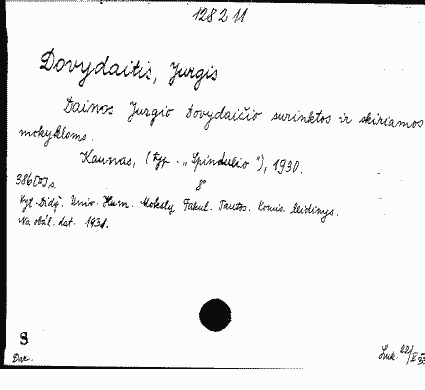 1282 11
Dovydaitis, Jurgis
Dainos Jurgio Dovydaičio surinktos ir skiriamos
mokykloms.
Kaunas, (typ. „Spindulio"), 1930.
8°
Vyt. Didž. Univ. Hum. Mokslų Fakul. Tautos. Komis. leidinys.
Na obál. dat. 1931.
S
Dar.